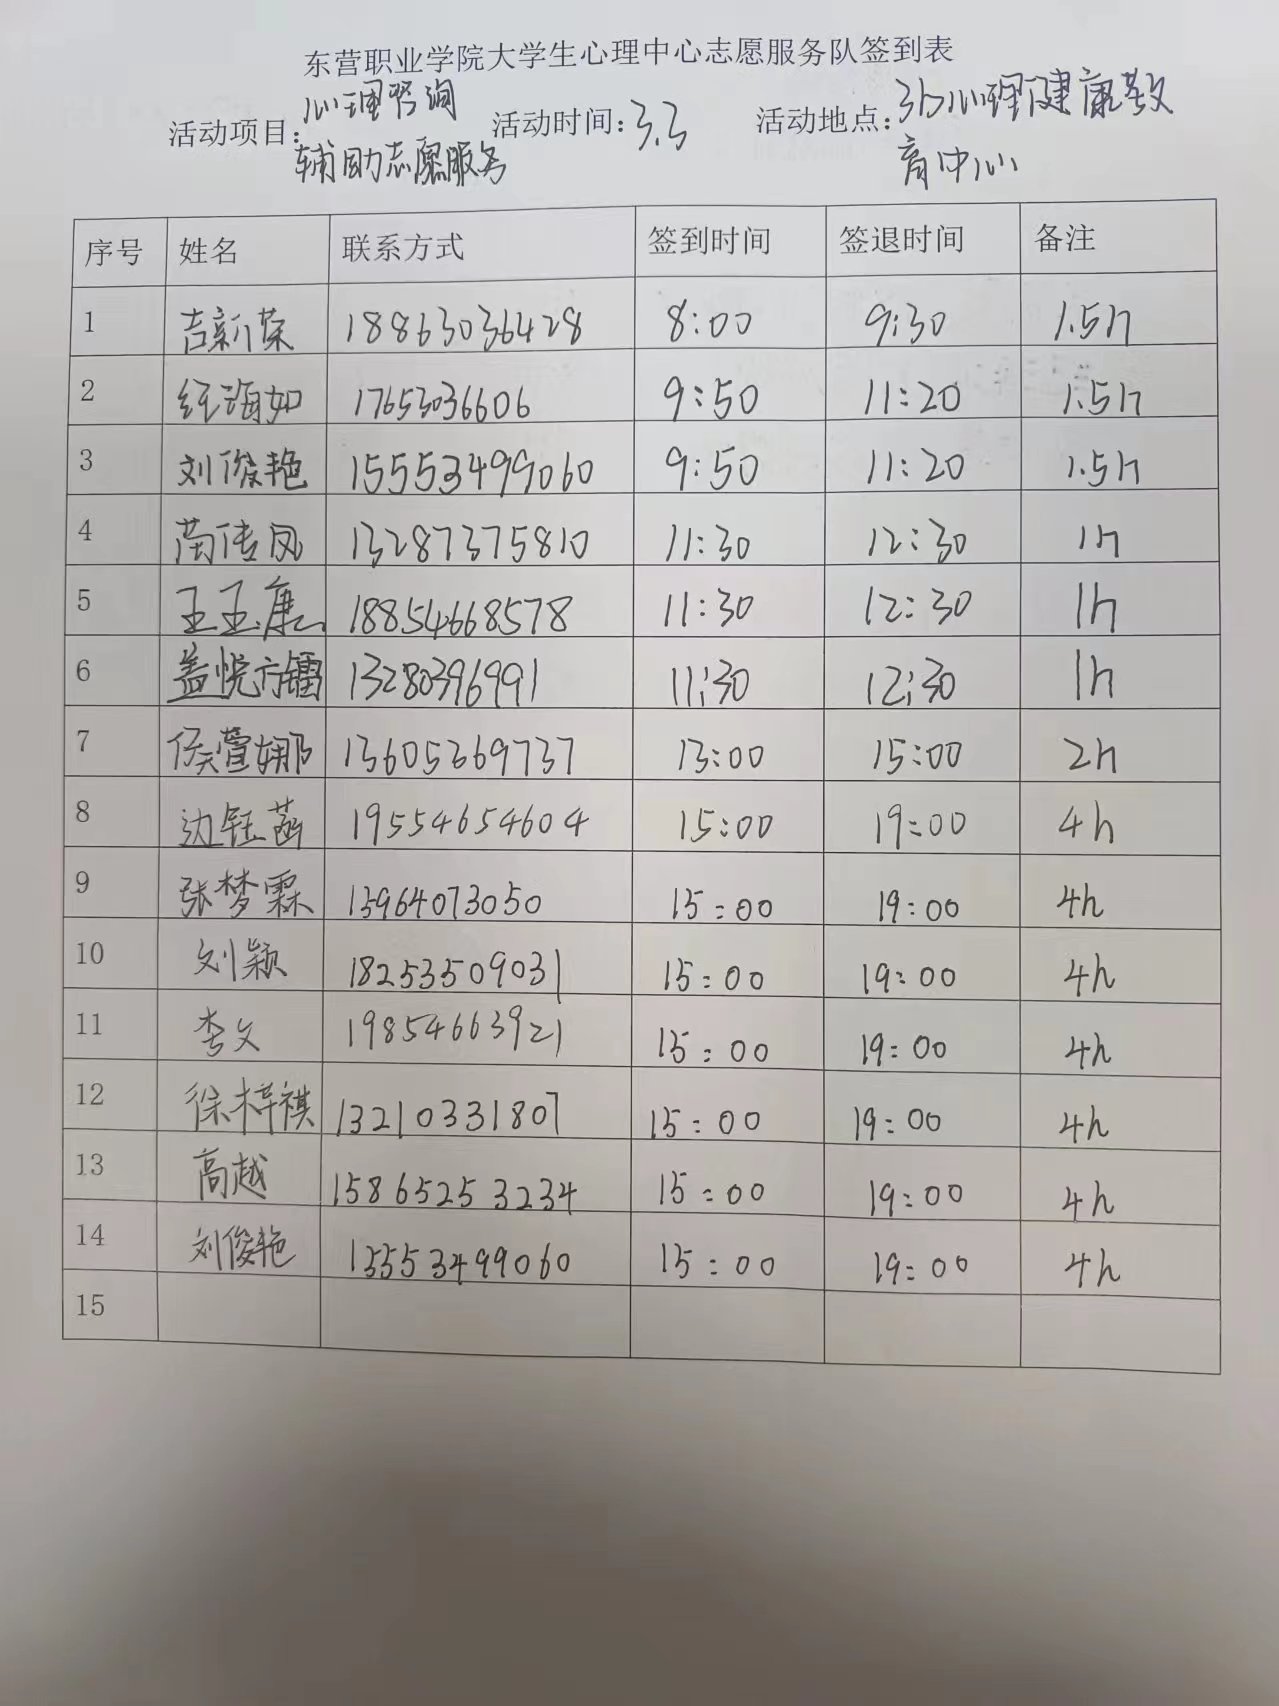 东营职业学院大学生心理中心志愿服务队签到表
活动项目: 心理咨询 活动时间: 3.3 活动地点: 3b心理健康教
辅助志愿服务 育中心
序号 姓名 联系方式 签到时间 签退时间 备注
1 吉新荣 18863036428 8:00 9:30 1.5h
2 经海如 17653036606 9:50 11:20 1.5h
3 刘俊艳 15553499060 9:50 11:20 1.5h
4 苗传凤 13287375810 11:30 12:30 1h
5 王玉康 18854668578 11:30 12:30 1h
6 盖悦方镭 13280396991 11:30 12:30 1h
7 侯萱娜 13605369737 13:00 15:00 2h
8 边钰菡 19554654604 15:00 19:00 4h
9 张梦霖 13964073050 15:00 19:00 4h
10 刘颖 18253509031 15:00 19:00 4h
11 李文 19854663921 15:00 19:00 4h
12 徐梓祺 13210331807 15:00 19:00 4h
13 高越 15865253234 15:00 19:00 4h
14 刘俊艳 15553499060 15:00 19:00 4h
15